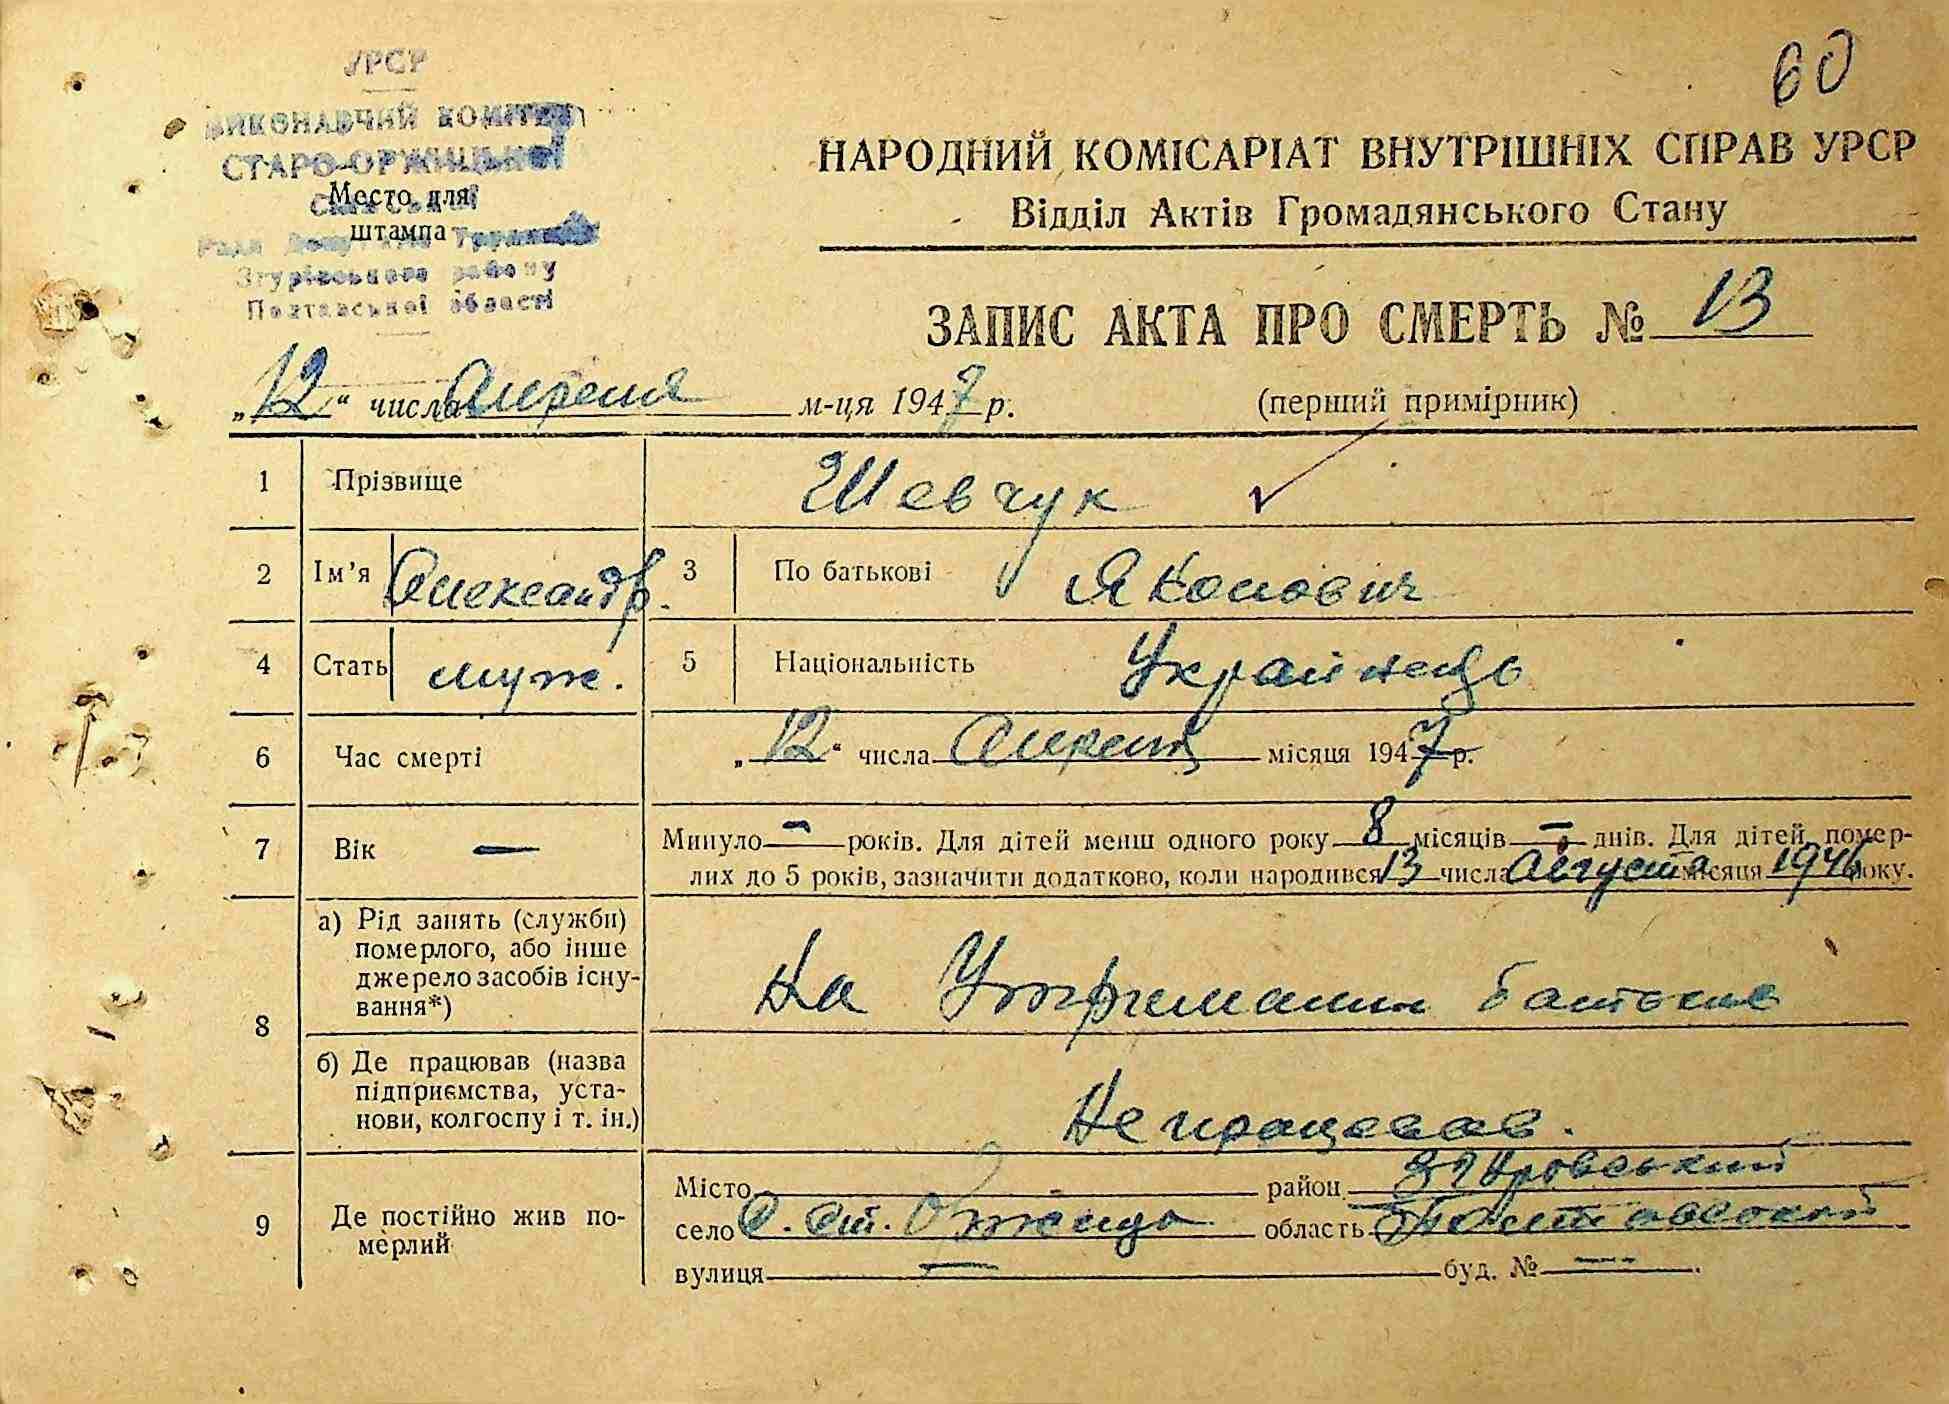 60
УРСР
ВИКОНАВЧИЙ КОМІТЕТ
СТАРО-ОРЖИЦЬКОЇ
Сільської
Ради Депутатів Трудящих
Згурівського району
Полтавської області
Место для
штампа
НАРОДНИЙ КОМІСАРІАТ ВНУТРІШНІХ СПРАВ УРСР
Відділ Актів Громадянського Стану
ЗАПИС АКТА ПРО СМЕРТЬ № 13
„12“ числа Апреля м-ця 1947 р. (перший примірник)
1 Прізвище Шевчук
2 Ім’я Александр. 3 По батькові Яковович
4 Стать муж. 5 Національність Українець
6 Час смерті „12“ числа Апреля місяця 1947 р.
7 Вік — Минуло — років. Для дітей менш одного року 8 місяців — днів. Для дітей, помер-
лих до 5 років, зазначити додатково, коли народився 13 числа Августа місяця 1946 року.
8 а) Рід занять (служби)
померлого, або інше
джерело засобів існу-
вання*)
На Утриманни батьків
б) Де працював (назва
підприємства, уста-
нови, колгоспу і т. ін.)
Не працював.
9 Де постійно жив по-
мерлий
Місто район Згуровський
село С. Ст. Оржица область Полтавской
вулиця — буд. № —